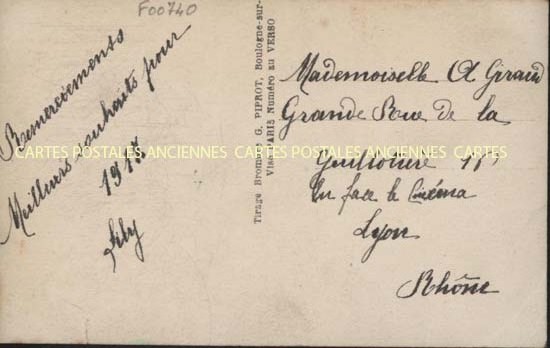 F00740
Remerciements
Meilleurs souhaits pour
Tirage Bromure G. PIPROT, Boulogne-sur-
Visa PARIS Numéro au VERSO
Mademoiselle A Giraud
Grande Rue de la
Guillotière
En face le Cinéma
Lyon
Rhône
CARTES POSTALES ANCIENNES CARTES POSTALES ANCIENNES CARTES POSTALES ANCIENNES